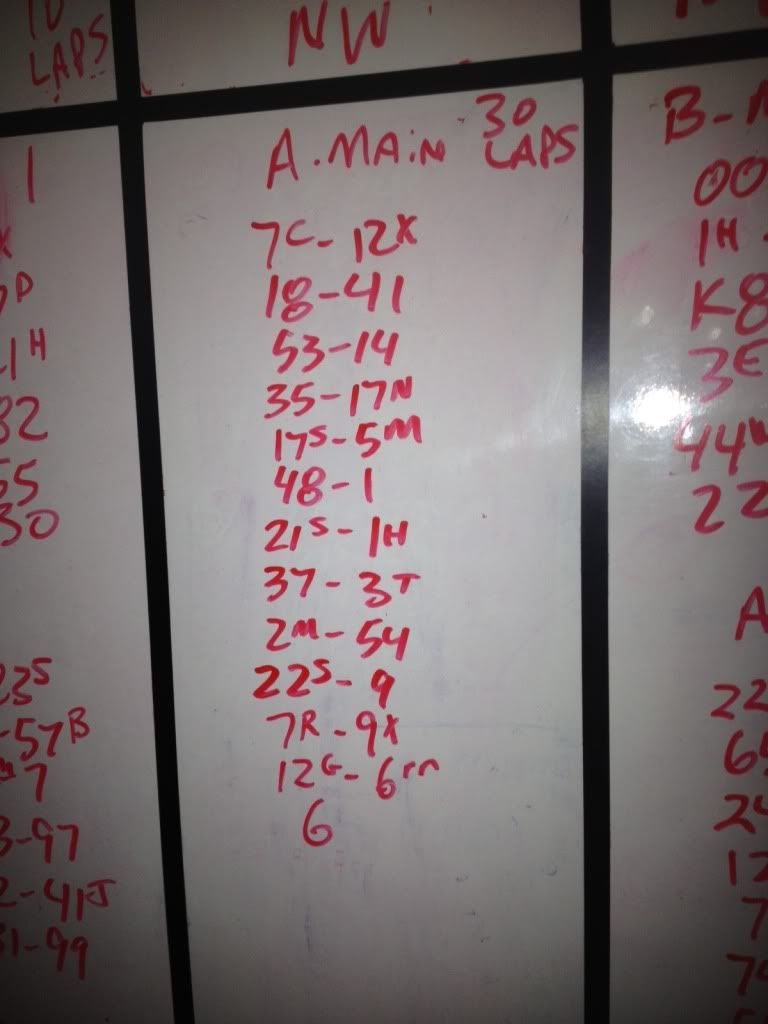 10
LAPS
1
P
1H
82
55
30
23S
-57B
7
3-97
2-41J
31-99
NW
A-MAIN 30 LAPS
7C-12X
18-41
53-14
35-17N
17S-5M
48-1
21S-1H
37-3T
2M-54
22S-9
7R-9X
12G-6m
6
B-
00
1H-
K8
3E
44
22
A
22
65
24
12
7